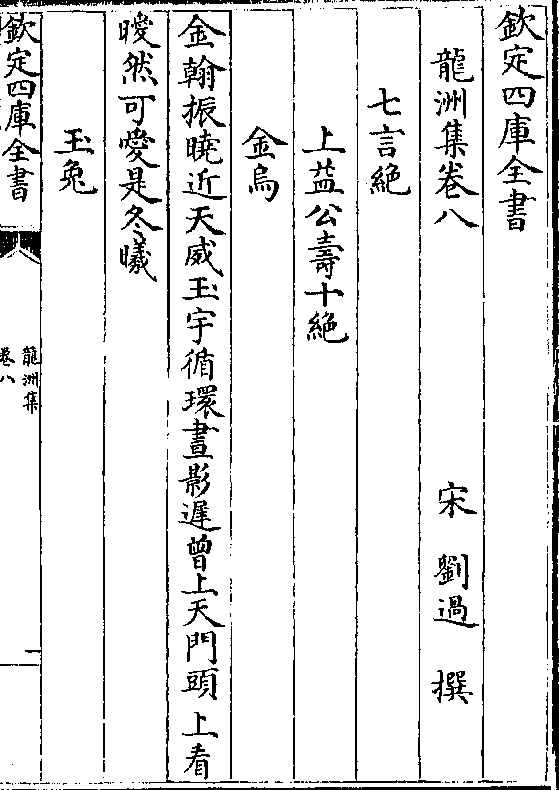 欽定四庫全書
龍洲集卷八
宋 劉過 撰
七言絶
上益公壽十絶
金烏
金翰振曉近天威玉宇循環晝影遲曾上天門頭上看
曖然可愛是冬曦
玉兔
欽定四庫全書
龍洲集
卷八
一